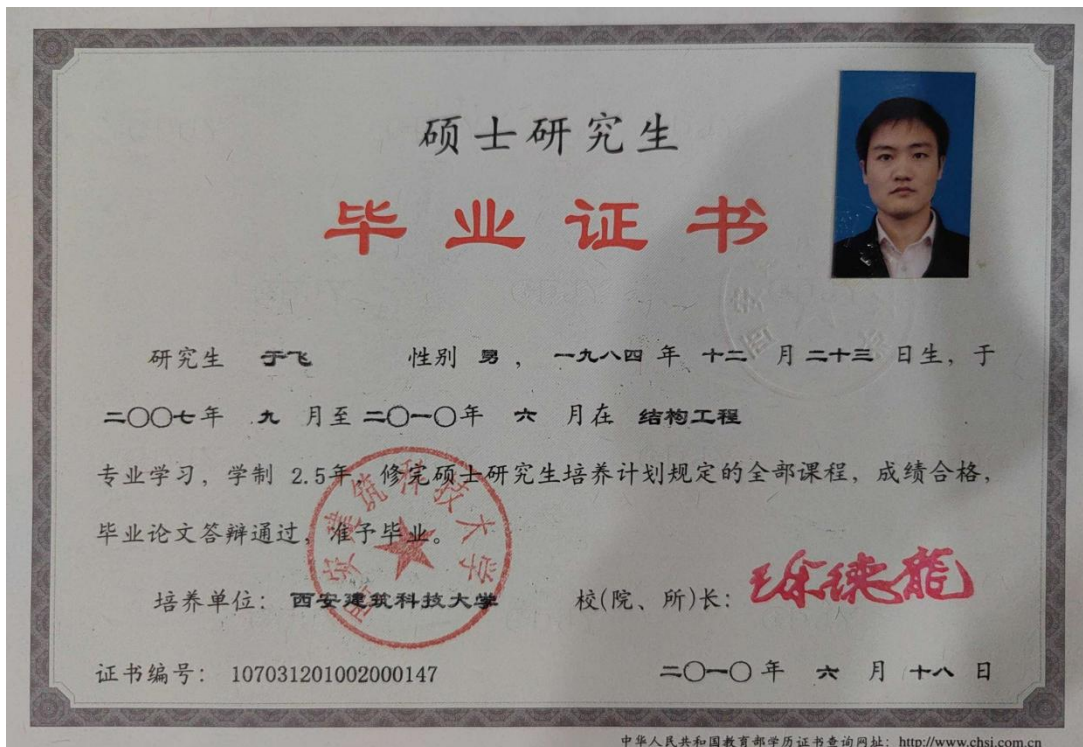 硕士研究生
毕业证书
研究生 于飞 性别 男， 一九八四 年 十二 月 二十三 日生，于
二〇〇七年 九 月至 二〇一〇年 六 月在 结构工程
专业学习，学制 2.5年，修完硕士研究生培养计划规定的全部课程，成绩合格，
毕业论文答辩通过，准予毕业。
西安建筑科技大学
培养单位： 西安建筑科技大学 校(院、所)长：徐德龙
证书编号： 107031201002000147 二〇一〇 年 六 月 十八 日
中华人民共和国教育部学历证书查询网址：http://www.chsi.com.cn